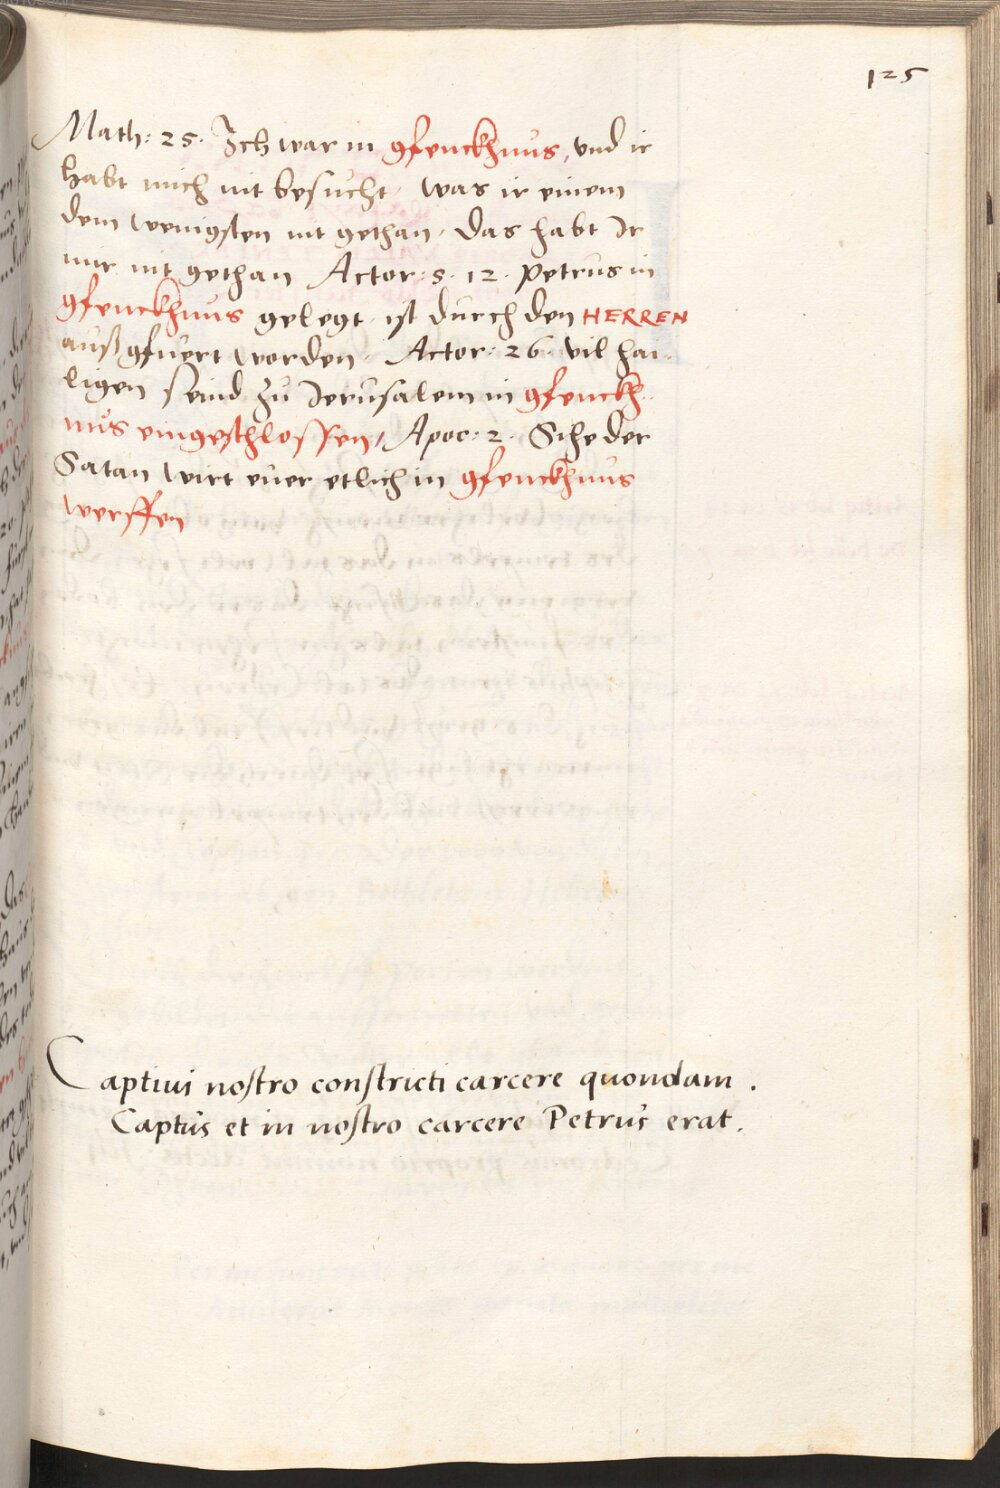 125
Math: 25. Ich war in gfenckhnus, und ir
habt mich nit besucht. Was ir einem
dem wenigsten nit gethan. das habt Ir
mir nit gethan Actor: 5. 12. Petrus in
gfenckhnus gelegt ist durch den HERREN
außgfuert worden. Actor: 26. vil hai-
ligen seind zu Jerusalem in gfenckh-
nus eingeschlossen, Apoc: 2. Sihe der
Satan wirt euer etlich in gfenckhnus
werffen
Captiui nostro constricti carcere quondam.
Captus et in nostro carcere Petrus erat.